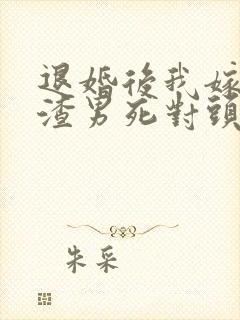 退婚後我嫁
渣男死對頭
朱采